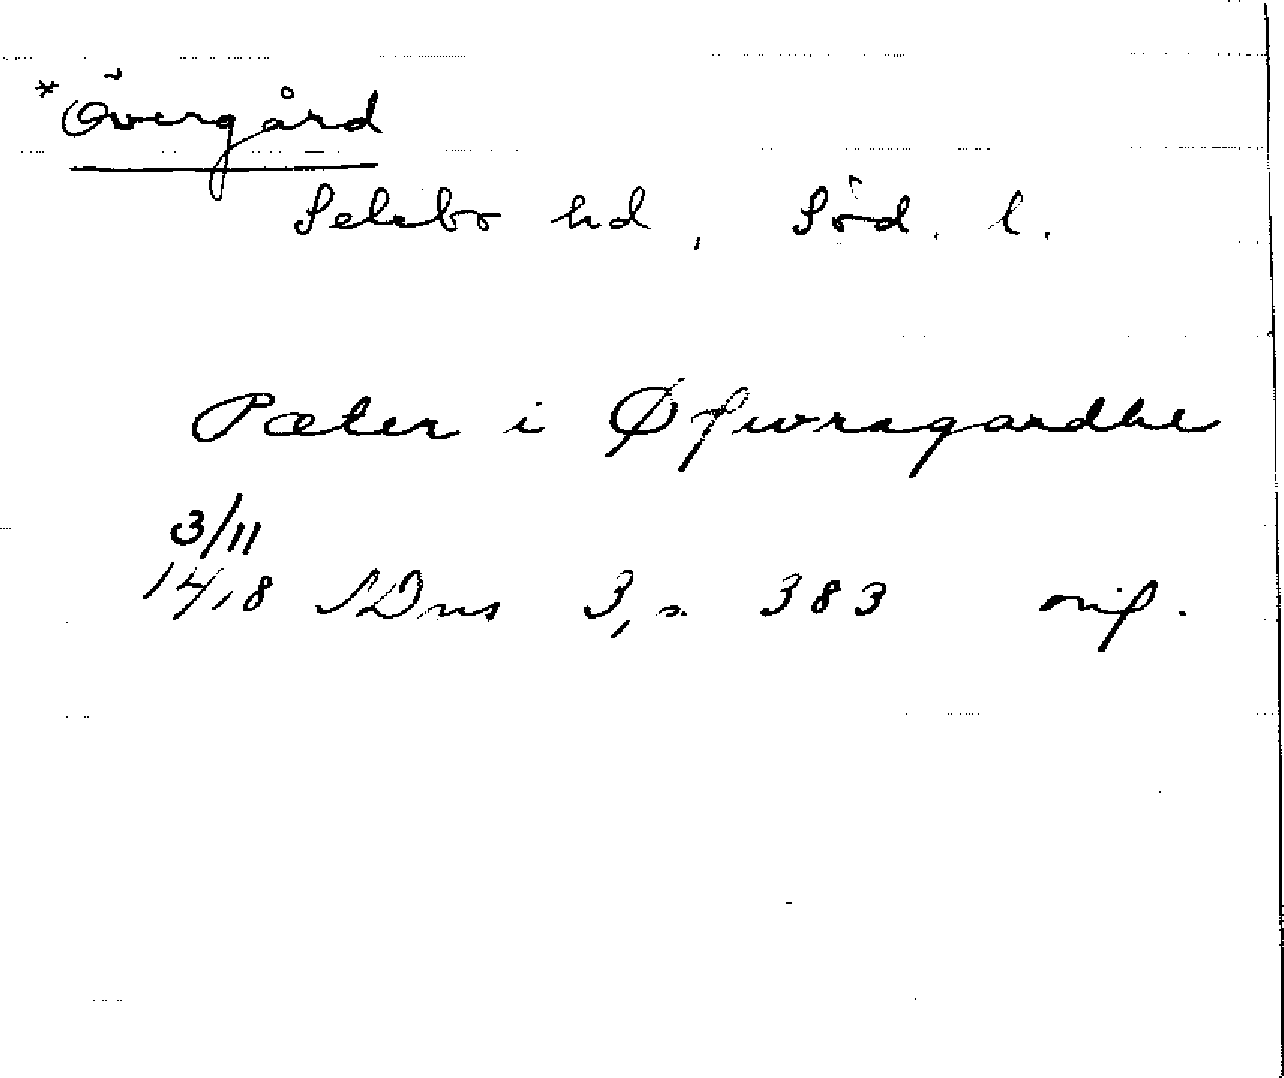 *Övergård
Selebo hd, Söd. l.
Pæter i Øfwragardhe
3/11
1418 SDns 3, s. 383 orig.